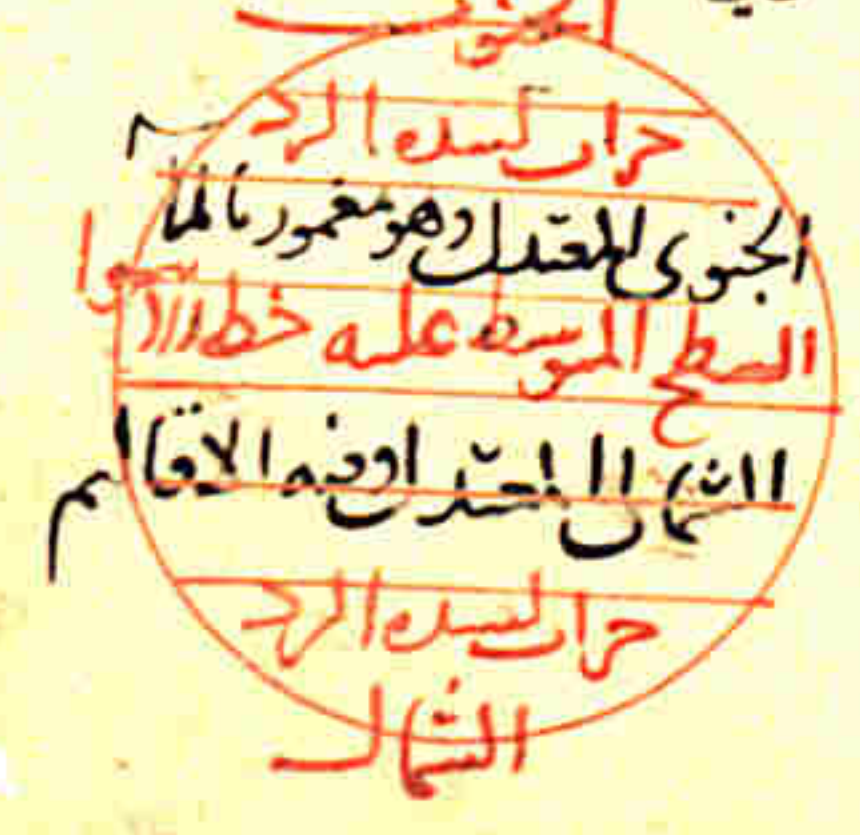 الجنوب
خراب لشدة البرد
الجنوبي المعتدل وهو مغمور بالماء
السطح المتوسط عليه خط الاستوا
الشمال المعتدل وفيه الاقاليم
خراب لشدة البرد
الشمال